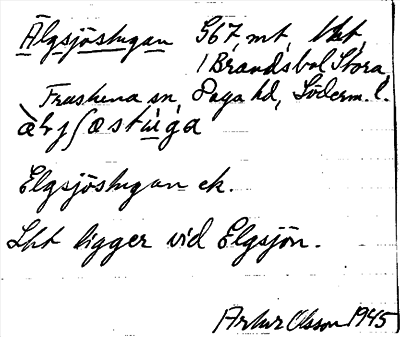 Älgsjöstugan 967, mt, Lht,
1 Brandsbol Stora,
Frustuna sn, Daga hd, Söderm. l.
Elgsjöstugan ek.
Lht ligger vid Elgsjön.
Artur Olsson 1945